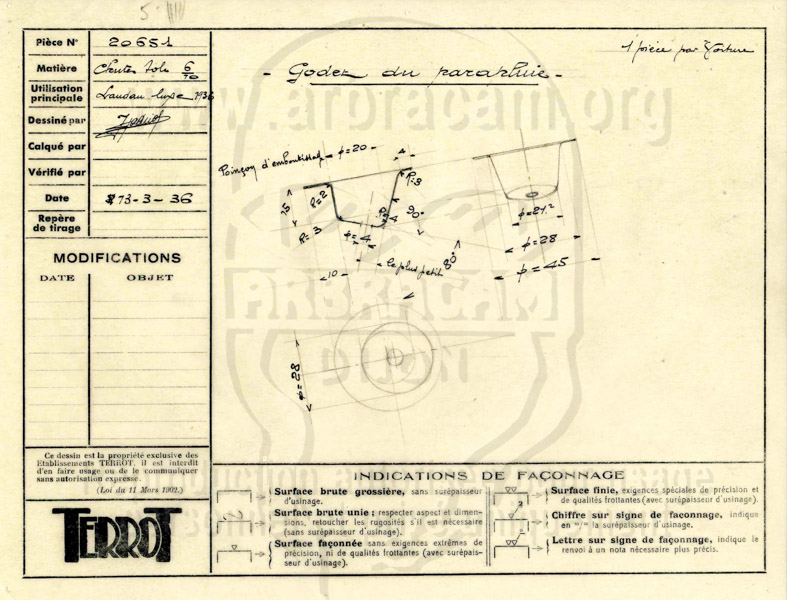 Pièce N° 20651
Matière Chute tole 6/10
Utilisation principale Landau luxe 1936
Dessiné par
Calqué par
Vérifié par
Date 13-3-36
Repère de tirage
MODIFICATIONS
DATE OBJET
Ce dessin est la propriété exclusive des
Etablissements TERROT. il est interdit
d'en faire usage ou de le communiquer
sans autorisation expresse.
(Loi du 11 Mars 1902.)
TERROT
1 pièce par Voiture
- Godet du parapluie -
Poinçon d'emboutissage φ=20
R=3
15
R=2
R=3
4
90°
φ=4
le plus petit
80°
10
φ=28
φ=21.²
φ=28
φ=45
www.arbracam.org
ARBRACAM
DIJON
INDICATIONS DE FAÇONNAGE
Surface brute grossière, sans surépaisseur
d'usinage.
Surface brute unie; respecter aspect et dimen-
sions, retoucher les rugosités s'il est nécessaire
(sans surépaisseur d'usinage).
Surface façonnée sans exigences extrêmes de
précision, ni de qualités frottantes (avec surépais-
seur d'usinage).
Surface finie, exigences spéciales de précision et
de qualités frottantes (avec surépaisseur d'usinage).
Chiffre sur signe de façonnage, indique
en "/" la surépaisseur d'usinage.
Lettre sur signe de façonnage, indique le
renvoi à un nota nécessaire plus précis.